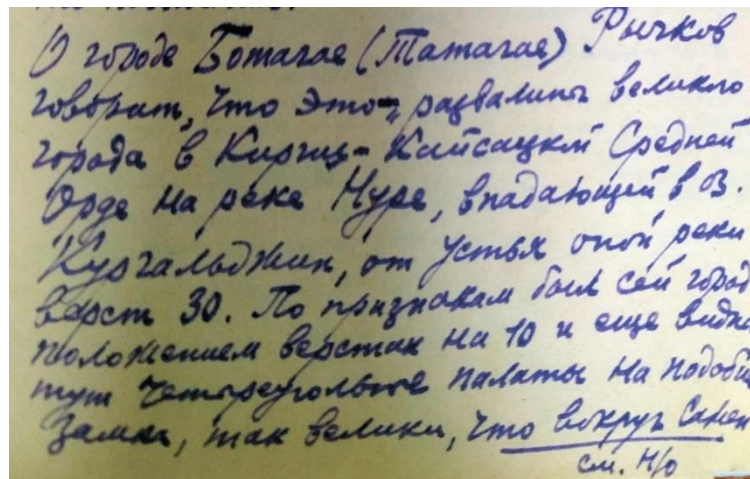 О городе Ботагае (Татагае) Рычков
говорит, что это „развалины великого
города в Киргиз-Кайсацкой Средней
Орде на реке Нуре, впадающей в оз.
Кургальджин, от устья оной реки
верст 30. По признакам был сей город
положением верстах на 10 и еще видно
тут четыреугольные палаты на подобие
Замка, так велики, что вокруг
см. н/о